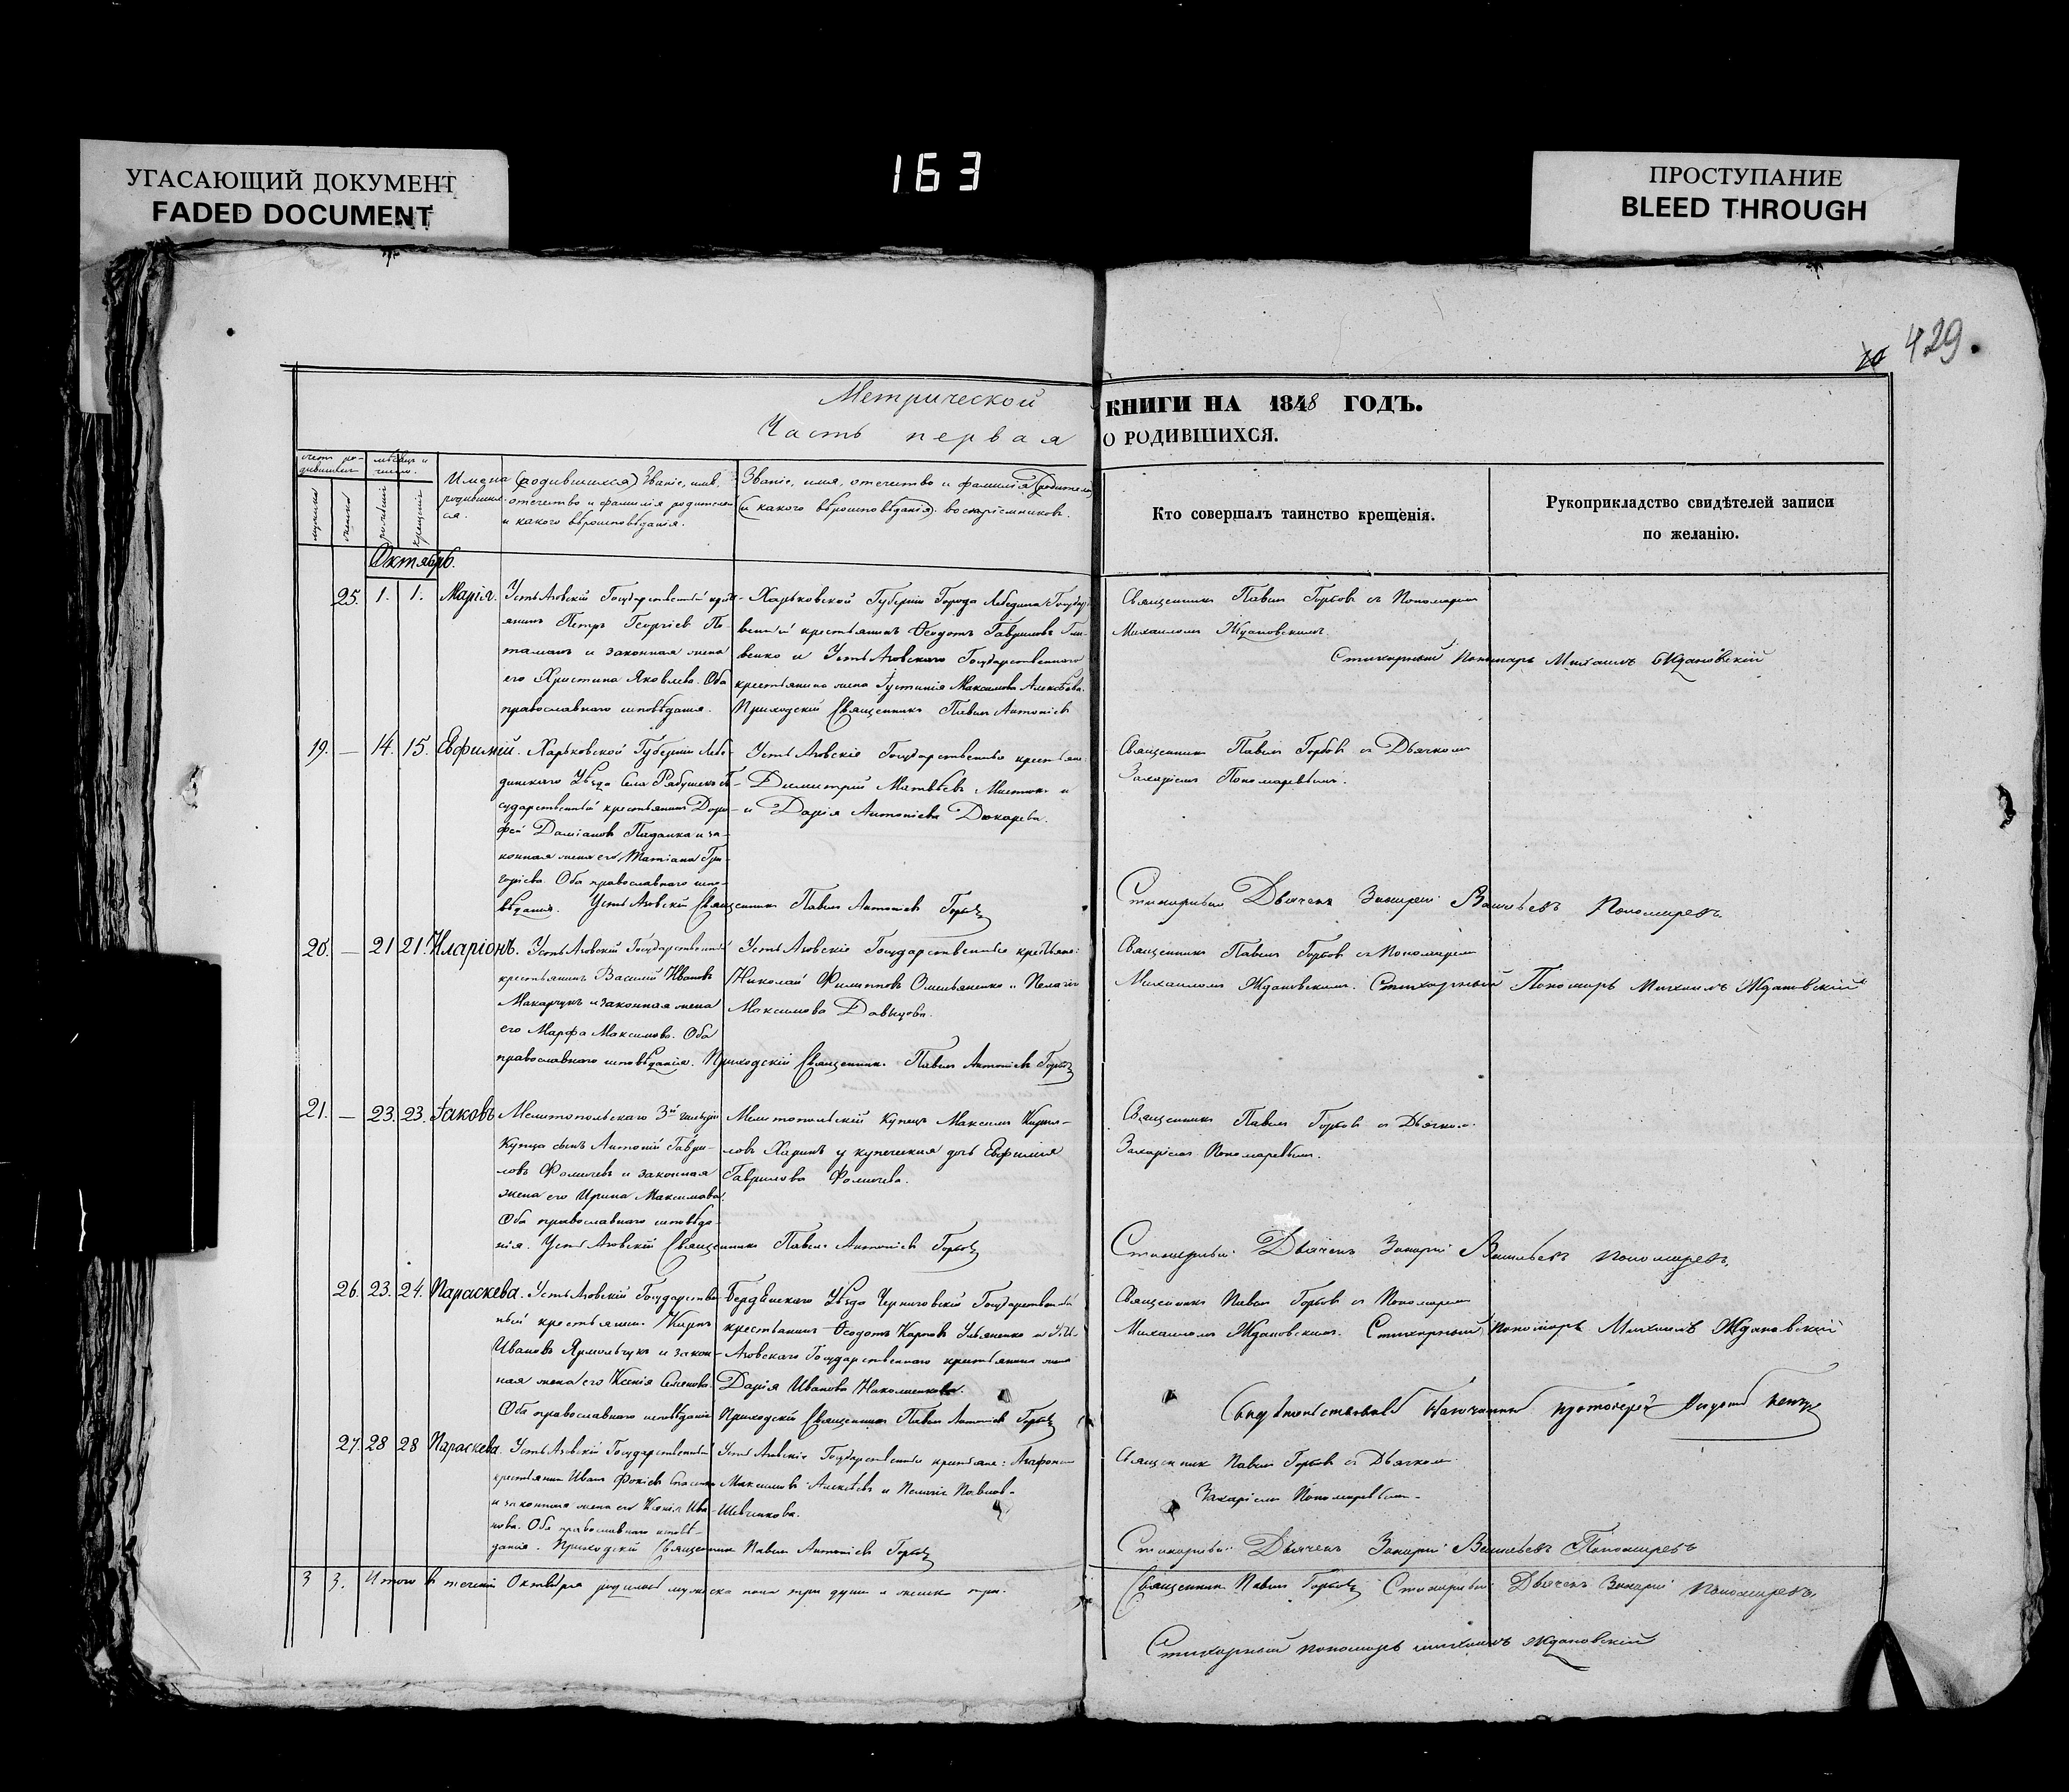 УГАСАЮЩИЙ ДОКУМЕНТ
FADED DOCUMENT
163
ПРОСТУПАНИЕ
BLEED THROUGH
429.
Метрической КНИГИ НА 1848 ГОДЪ.
Часть первая О РОДИВШИХСЯ.
Званіе, имя, отечество и фамилія (родителей)
отечество и фамилія родителей
и какого вѣроисповѣданія.
(и какого вѣроисповѣданія) воспріемниковъ.
Кто совершалъ таинство крещенія.
Рукоприкладство свидѣтелей записи
по желанію.
Октябрь.
25. 1. 1. Марія.
Усть Азовскій Государственный крестьянинъ Петръ Георгіевъ
и законная жена
его Христина Яковлева. Оба
православнаго исповѣданія.
Харьковской Губерніи Города Лебедина
крестьянинъ Ѳеодотъ Гавриловъ
и Усть Азовскаго Государственнаго
крестьянина жена Густинія Максимова Алексѣева.
Приходскій Священникъ Павелъ Антоніевъ
Священникъ Павелъ Горбовъ съ Пономаремъ
Михаиломъ Ждановскимъ.
Стихарный Пономарь Михаилъ Ждановскій
19. — 14. 15. Евфимій.
Харьковской Губерніи Лебе-
динскаго Уѣзда Села
сударственный крестьянинъ Доро-
фей Даміановъ и за-
конная жена его Татіана Гри-
горіева. Оба православнаго испо-
вѣданія. Усть Азовскій Священникъ Павелъ Антоніевъ Горбовъ
Усть Азовскіе Государственные крестьяне
Димитрій Матвѣевъ
и Дарія Антоніева Дюкарева.
Священникъ Павелъ Горбовъ съ Дьячкомъ
Захаріемъ Пономаревымъ.
Стихарный Дьячекъ Захарій Васильевъ Пономаревъ.
20. — 21 21 Иларіонъ.
Усть Азовскій Государственный
крестьянинъ Василій Ивановъ
Макарчукъ и законная жена
его Марфа Максимова. Оба
православнаго исповѣданія. Приходскій Священникъ Павелъ Антоніевъ Горбовъ
Усть Азовскіе Государственные крестьяне:
Николай Филипповъ Омельяненко и Пелагія
Максимова Давыдова.
Священникъ Павелъ Горбовъ съ Пономаремъ
Михаиломъ Ждановскимъ. Стихарный Пономарь Михаилъ Ждановскій
21. — 23. 23. Іаковъ
Мелитопольскаго 3й гильдіи
Купца сынъ Антоній Гаври-
ловъ Фомичевъ и законная
жена его Ирина Максимова.
Оба православнаго исповѣда-
нія. Усть Азовскій Священникъ Павелъ Антоніевъ Горбовъ
Мелитопольскій Купецъ Максимъ Кирил-
ловъ Харинъ у купеческая дочь Евфимія
Гаврилова Фомичева.
Священникъ Павелъ Горбовъ съ Дьячкомъ
Захаріемъ Пономаревымъ.
Стихарный Дьячекъ Захарій Васильевъ Пономаревъ.
26. 23. 24. Параскева.
Усть Азовскій Государствен-
ный крестьянинъ
Ивановъ Ярмольчукъ и закон-
ная жена его Ксенія Семенова.
Оба православнаго исповѣданія Приходскій Священникъ Павелъ Антоніевъ Горбовъ
Бердянскаго Уѣзда Черниговскій Государственный
крестьянинъ Ѳеодотъ Карповъ Ульяненко и
Азовскаго Государственнаго крестьянина жена
Дарія Иванова
Священникъ Павелъ Горбовъ съ Пономаремъ
Михаиломъ Ждановскимъ. Стихарный Пономарь Михаилъ Ждановскій
Свидѣтельствовалъ
27. 28 28 Параскева.
Усть Азовскій Государственный
крестьянинъ Иванъ Фокіевъ
и законная жена его Ксенія Ива-
нова. Оба православнаго исповѣ-
данія. Приходскій Священникъ Павелъ Антоніевъ Горбовъ
Усть Азовскіе Государственные крестьяне: Агафонъ
Максимовъ Алексѣевъ и Пелагія Павлова
Шевченкова.
Священникъ Павелъ Горбовъ съ Дьячкомъ
Захаріемъ Пономаревымъ.
Стихарный Дьячекъ Захарій Васильевъ Пономаревъ
3 3. Итого въ теченіи Октября родилось мужеска пола три души и женска три.
Священникъ Павелъ Горбовъ Стихарный Дьячекъ Захарій Пономаревъ.
Стихарный пономарь Михаилъ Ждановскій